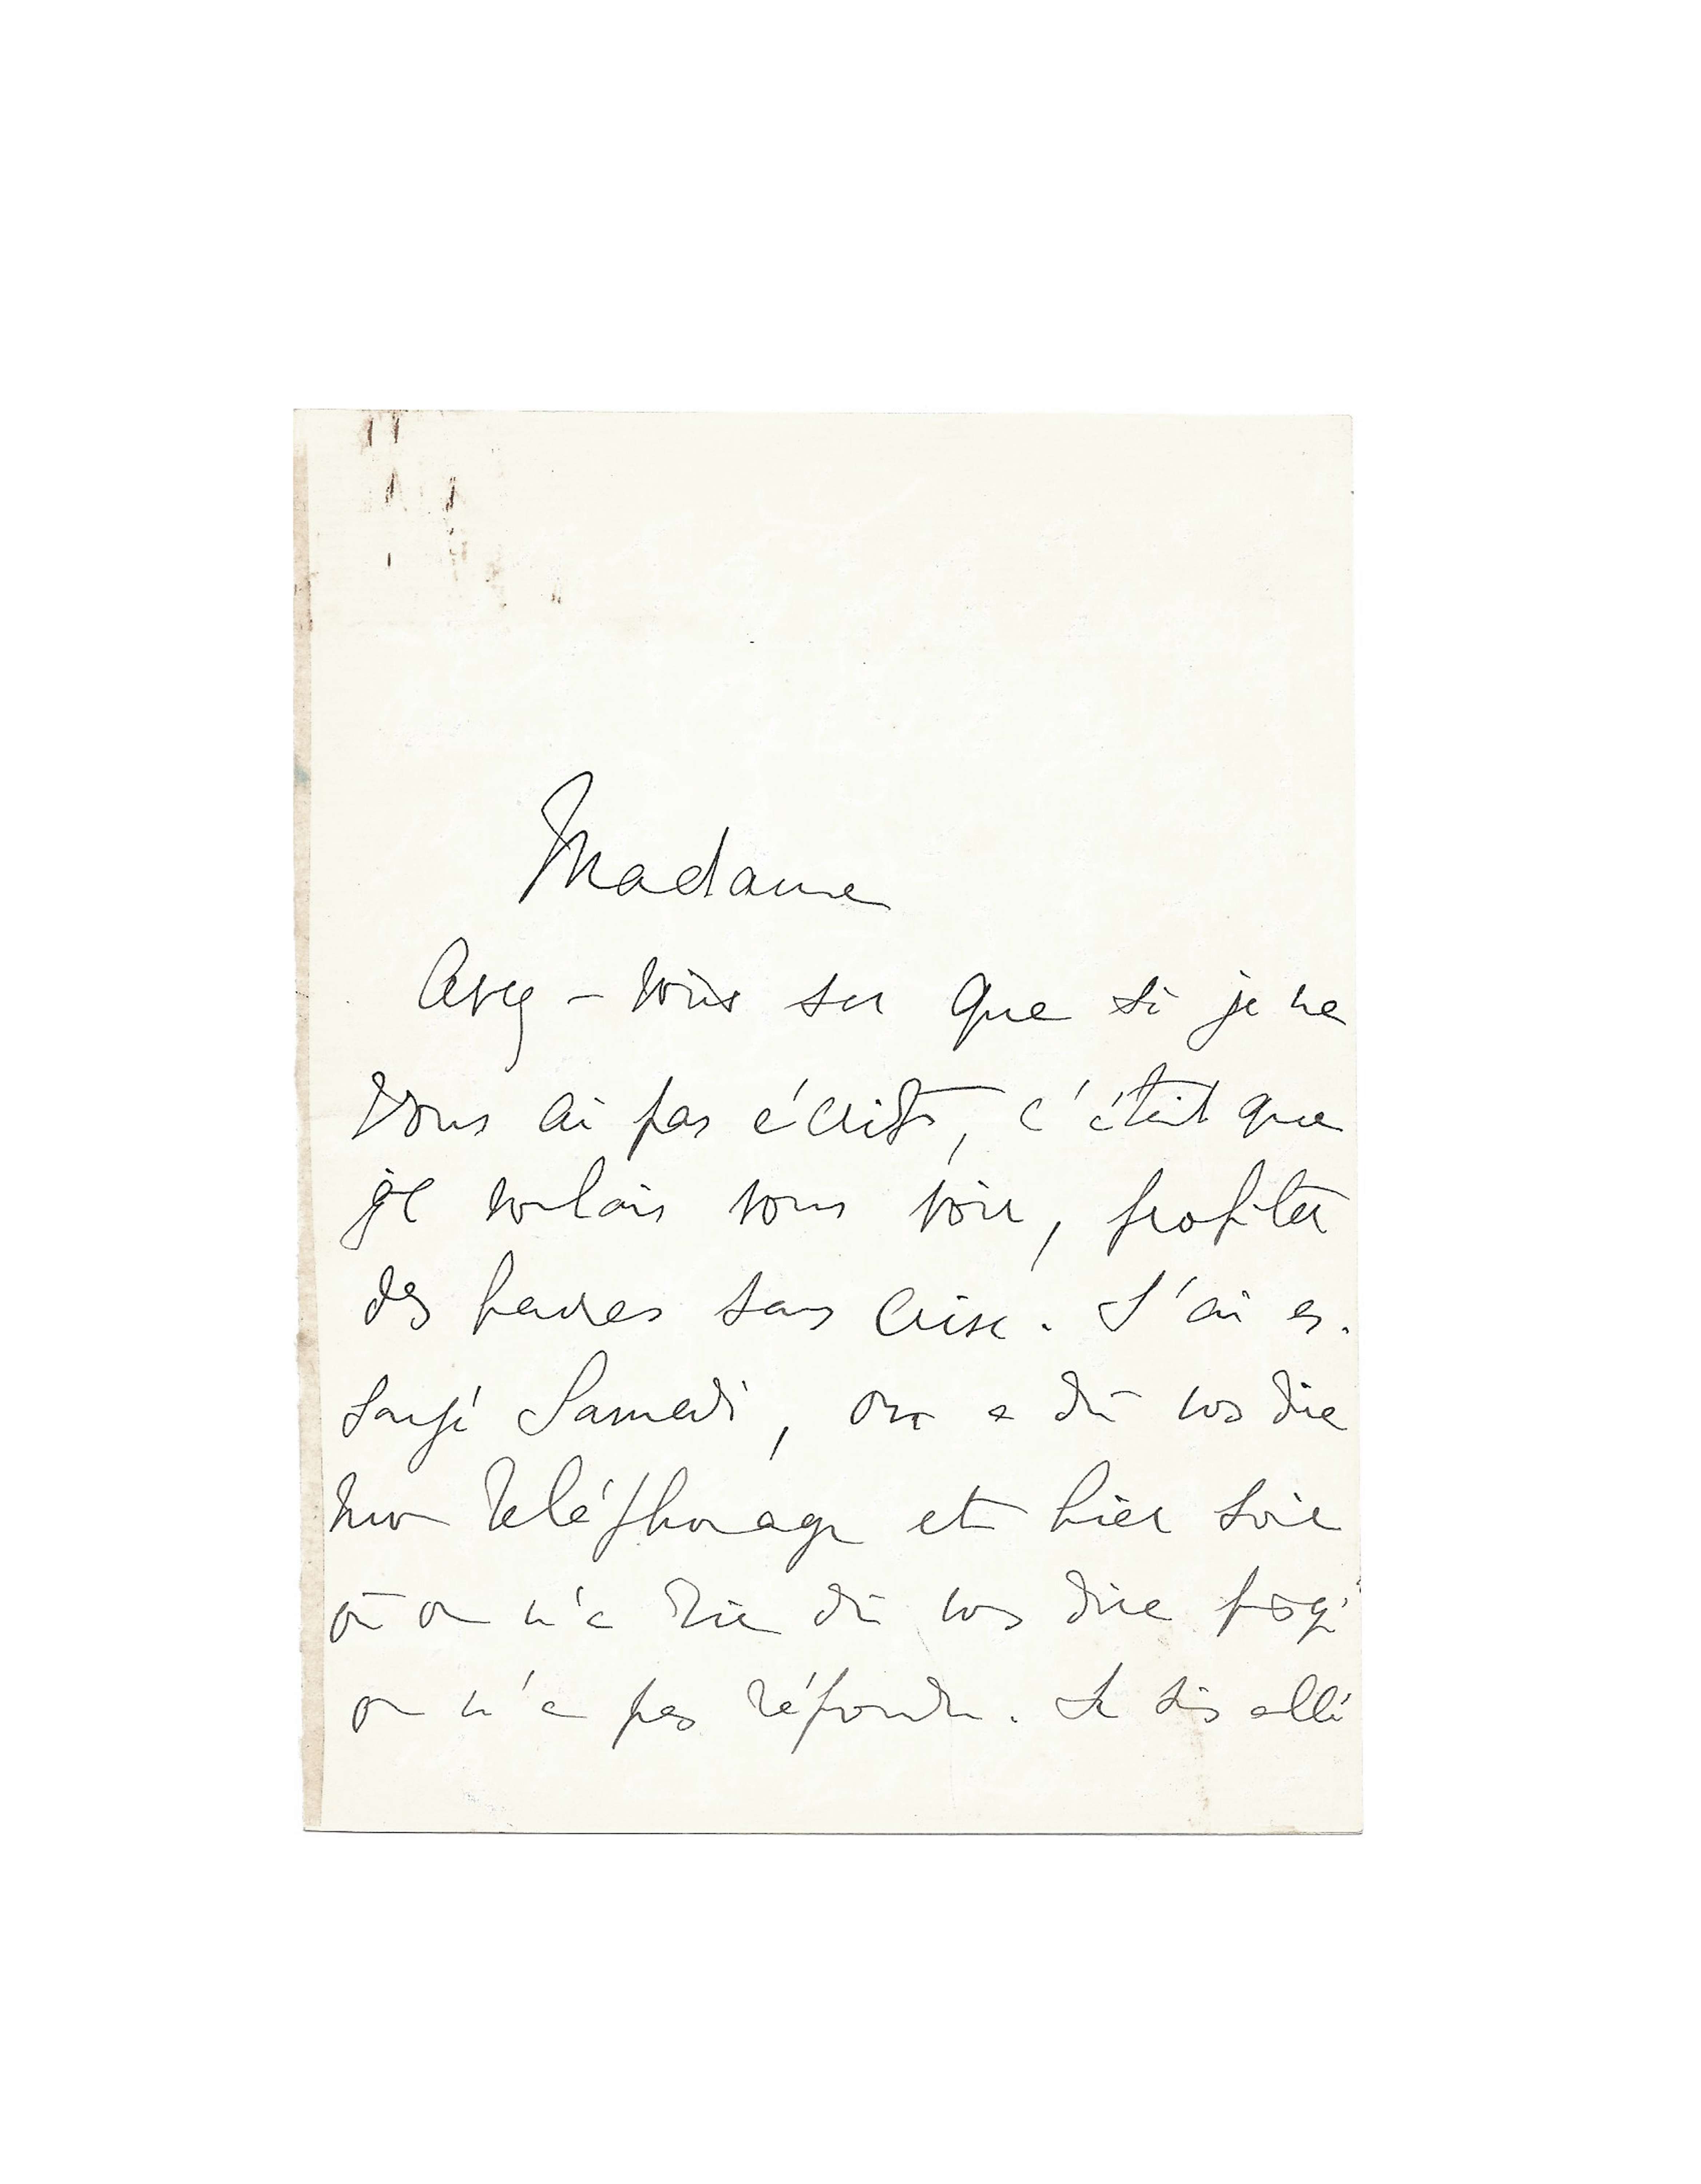 Madame
Avez-vous su que si je ne
vous ai pas écrit, c'était que
je voulais vous voir, profiter
des heures sans crise. J'ai es-
sayé Samedi, on a dû vos dire
mon téléphonage et hier soir
où on n'a rien dû vos dire psq'
on n'a pas répondu. Je sis allé